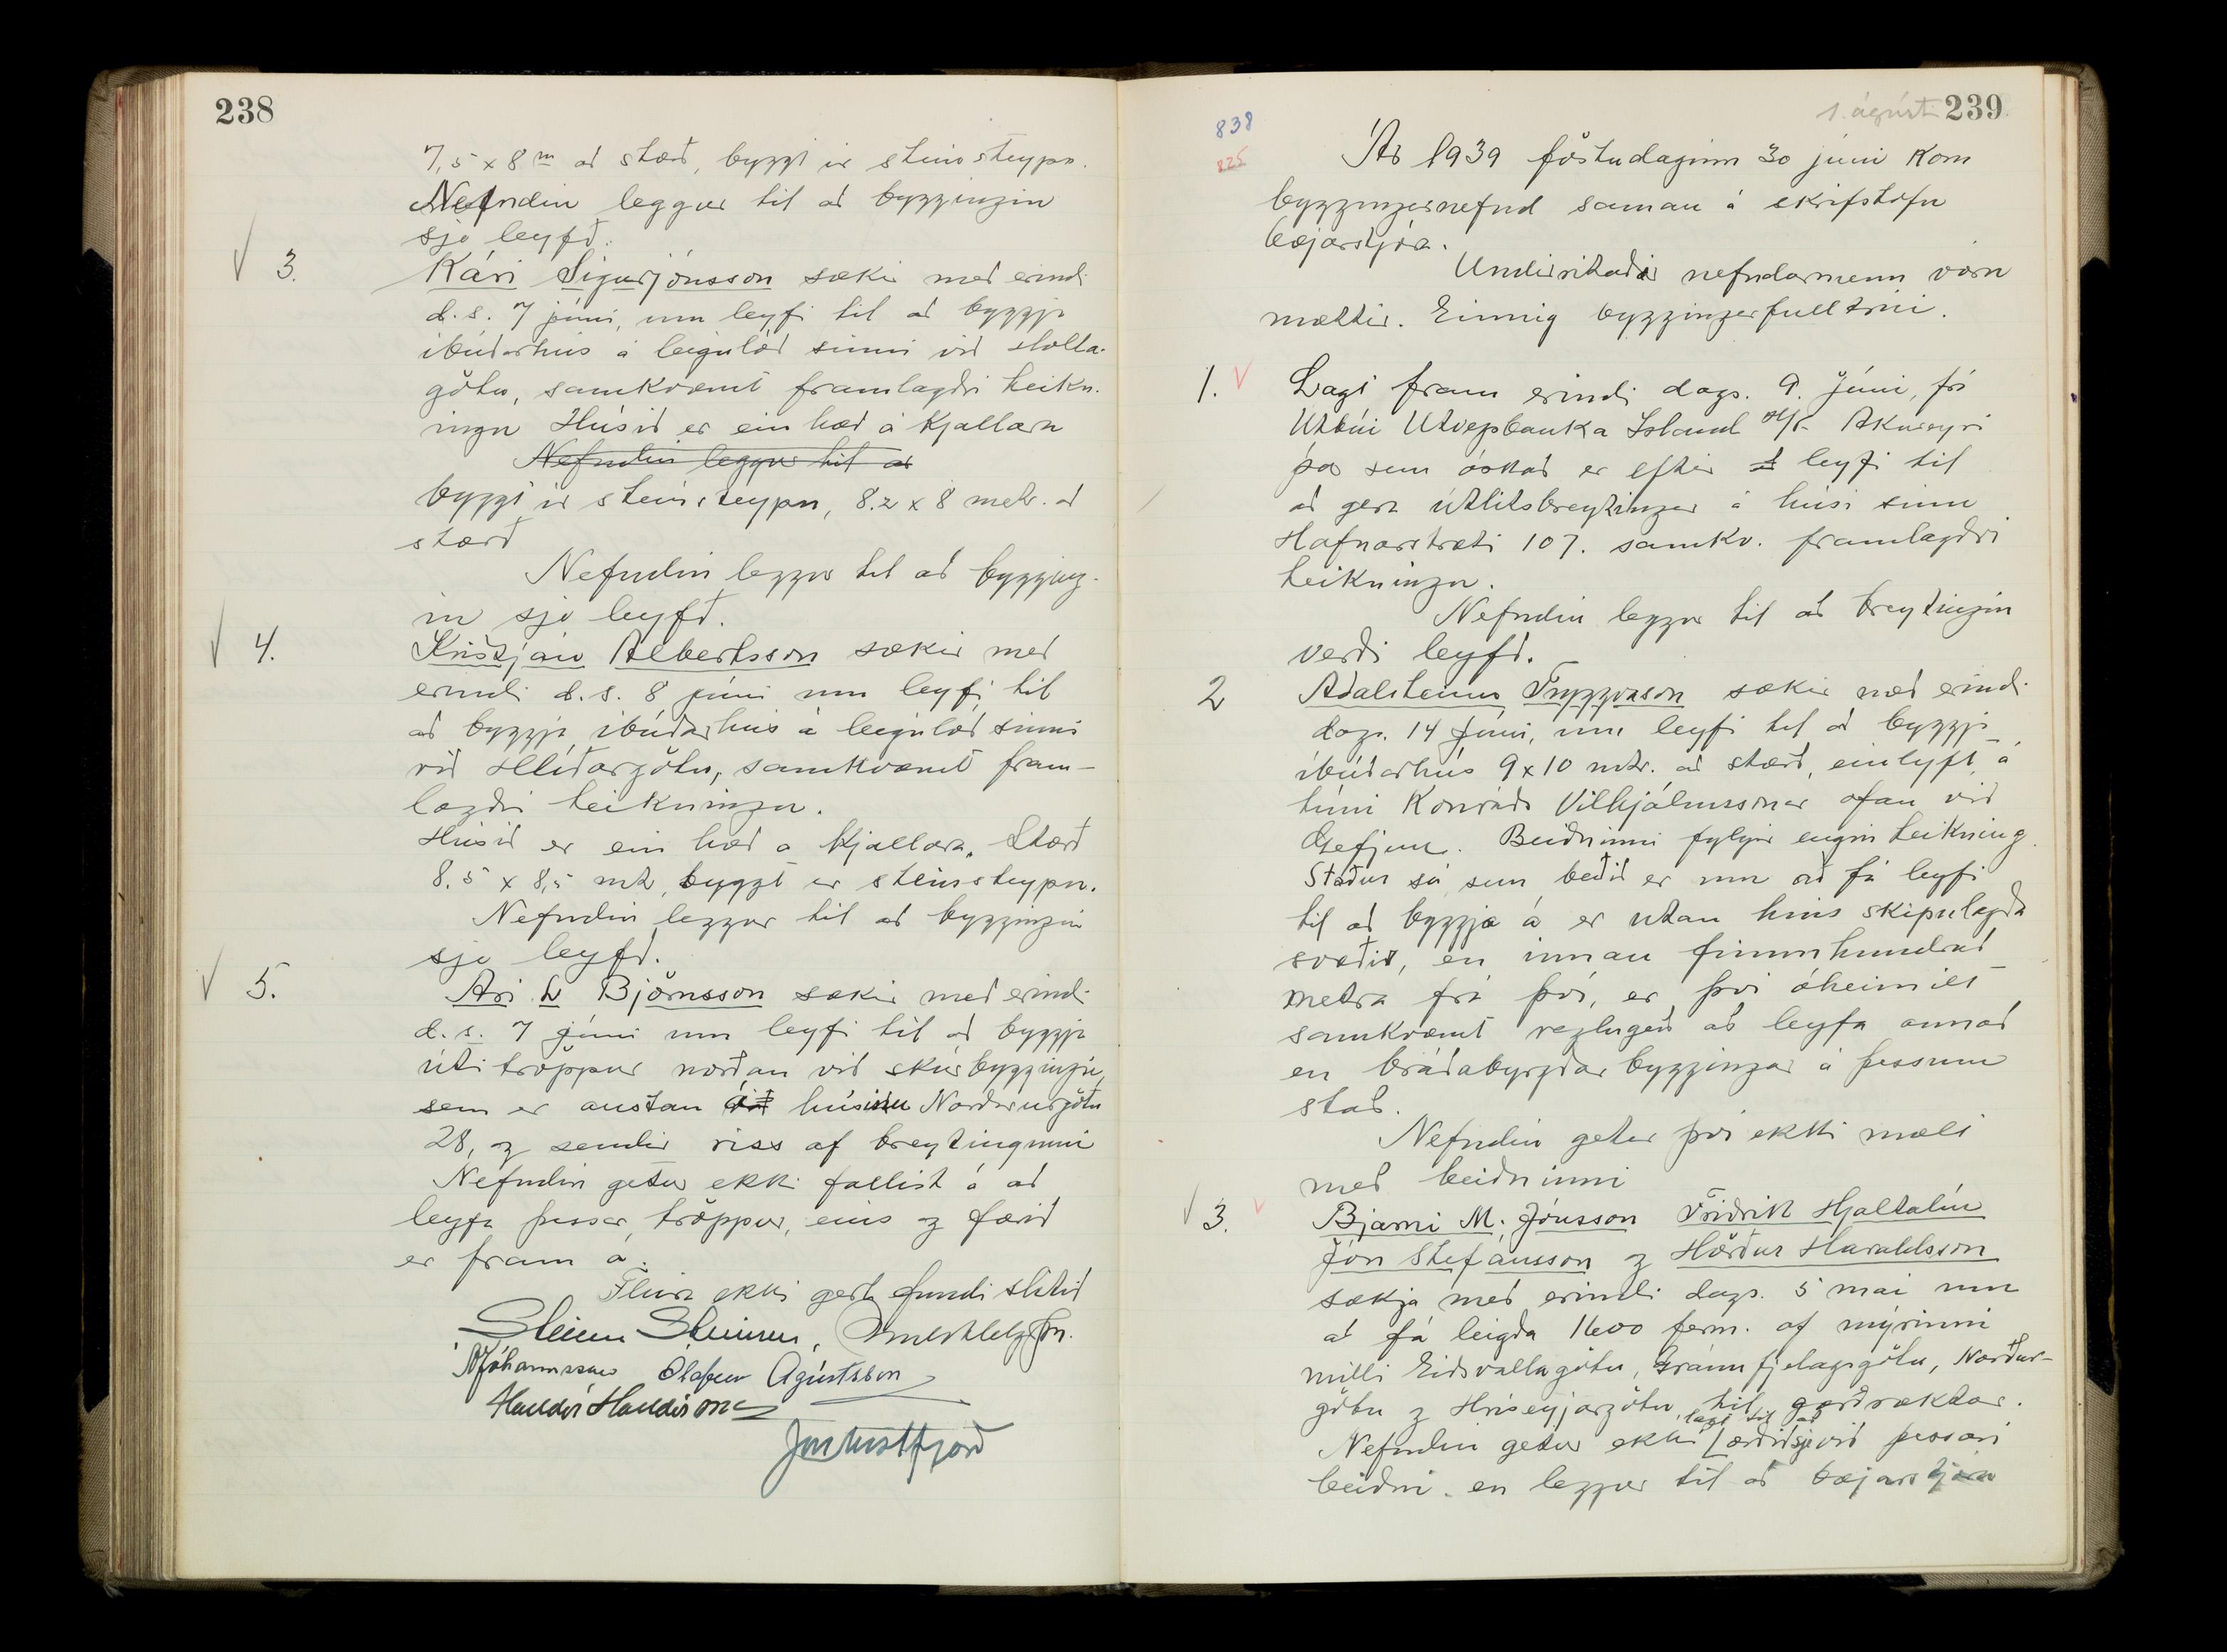 238
7,5 x 8 m að stærð, byggt úr steinsteypu.
Nefndin leggur til að byggingin
sje leyfð.
√ 3. Kári Sigurjónsson sækir með erindi
d.s. 7 júní, um leyfi til að byggja
íbúðarhús á leigulóð sinni við Holta-
götu, samkvæmt framlagðri teikn-
ingu Húsið er ein hæð á kjallara
Nefndin leggur til að
byggt úr steinsteypu, 8.2 x 8 metr. að
stærð
Nefndin leggur til að bygging-
in sje leyfð.
√ 4. Kristján Albertsson sækir með
erindi d.s. 8 júní um leyfi til
að byggja íbúðarhús á leigulóð sinni
við Hlíðargötu, samkvæmt fram-
lagðri teikningu.
Húsið er ein hæð á kjallara. Stærð
8.5 x 8,5 mtr, byggt úr steinsteypu.
Nefndin leggur til að byggingin
sje leyfð.
√ 5. Ari L Björnsson sækir með erindi
d.s. 7 júní um leyfi til að byggja
úti tröppur norðan við skúrbyggingu,
sem er austan við húsinu Norðurgötu
28, og sendir riss af breytingunni
Nefndin getur ekki fallist á að
leyfa þessar tröppur, eins og farið
er fram á.
Fleira ekki gert fundi slitið
Steinn Steinsen,
Jóhannsson Ólafur Ágústsson
Halldór Halldórsson
Jón Vestfjörð
1. ágúst 239
838
825
Ár 1939 föstudaginn 30 júní kom
byggingarnefnd saman á skrifstofu
bæjarstjóra.
Undirritaðir nefndarmenn voru
mættir. Einnig byggingarfulltrúi.
1. √ Lagt fram erindi dags. 9. júní, frá
Útbúi Útvegsbanka Island H/f. Akureyri
þar sem óskað er eftir leyfi til
að gera útlitsbreytingar á húsi sínu
Hafnarstræti 107. samkv. framlagðri
teikningu.
Nefndin leggur til að breytingin
verði leyfð.
2 Aðalsteinn Tryggvason sækir með erindi
dags. 14 júní, um leyfi til að byggja
íbúðarhús 9 x 10 mtr. að stærð, einlyft, á
túni Konráðs Vilhjálmssonar ofan við
Gefjun. Beiðninni fylgir engin teikning.
Staður sá, sem beðið er um að fá leyfi
til að byggja á er utan hins skipulagða
svæðis, en innan fimmhundrað
metra frá því, er því óheimilt
samkvæmt reglugerð að leyfa annað
en bráðabyrgðar byggingar á þessum
stað.
Nefndin getur því ekki mælt
með beiðninni
√ 3. √ Bjarni M. Jónsson Friðrik Hjaltalín
Jón Stefánsson og Hörður Haraldsson
sækja með erindi dags. 5 maí um
að fá leigða 1600 ferm. af mýrinni
milli Eiðsvallagötu, Gránufjelagsgötu, Norður-
götu og Hríseyjargötu, til garðræktar.
Nefndin getur ekki lagt til að orðið sje við þessari
beiðni. en leggur til að bæjarstjórn